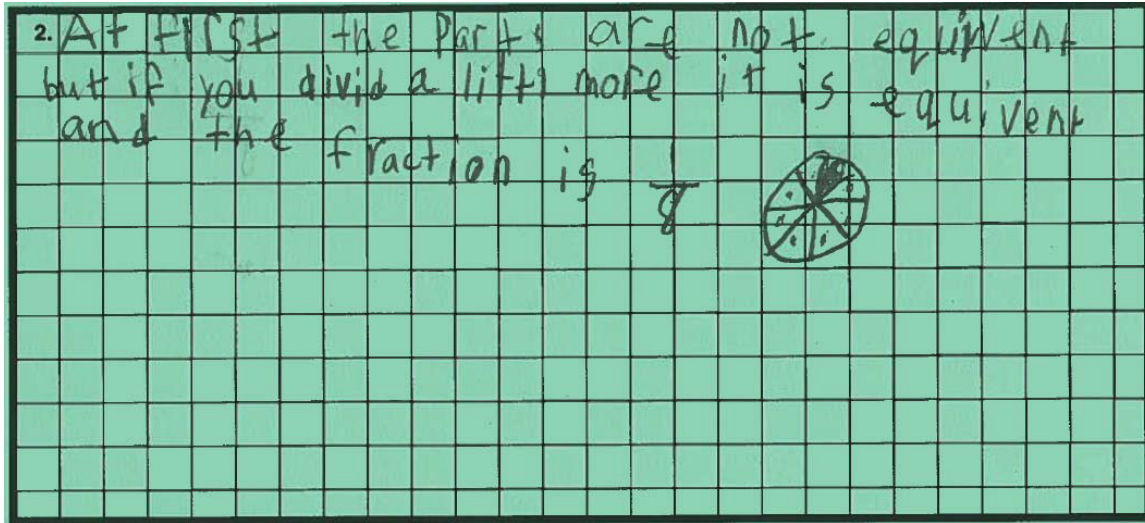 2. At first the parts are not equivent
but if you divid a littl more it is equivent
and the fraction is 1/8